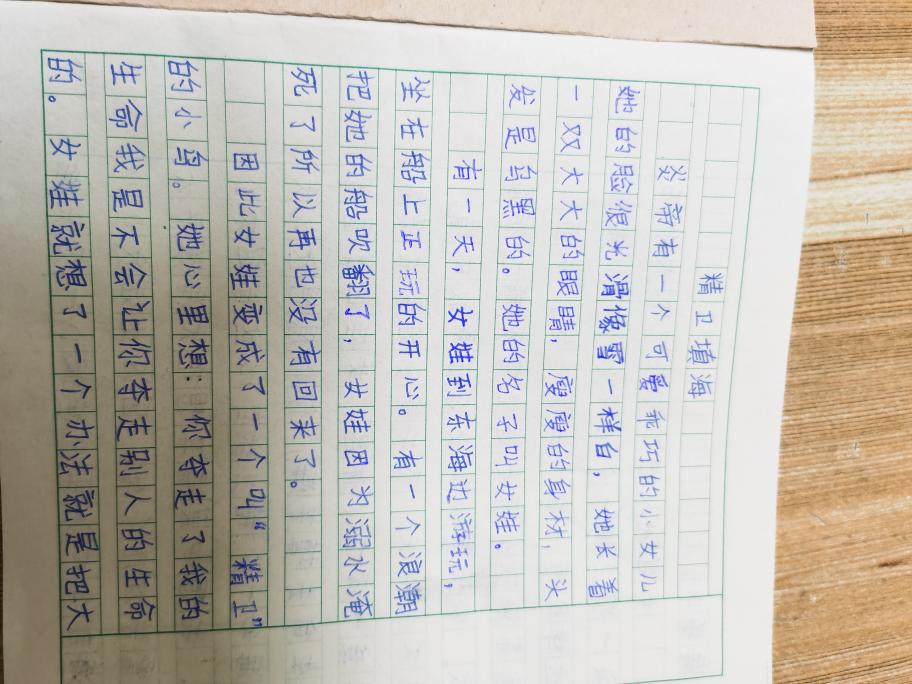 精卫填海
炎帝有一个可爱乖巧的小女儿
她的脸很光滑像雪一样白，她长着
一双大大的眼睛，瘦瘦的身材，头
发是乌黑的。她的名子叫女娃。
有一天，女娃到东海边游玩，
坐在船上正玩的开心。有一个浪潮
把她的船吹翻了，女娃因为溺水淹
死了所以再也没有回来了。
因此女娃变成了一个叫“精卫”
的小鸟。她心里想：你夺走了我的
生命我是不会让你夺走别人的生命
的。女娃就想了一个办法就是把大